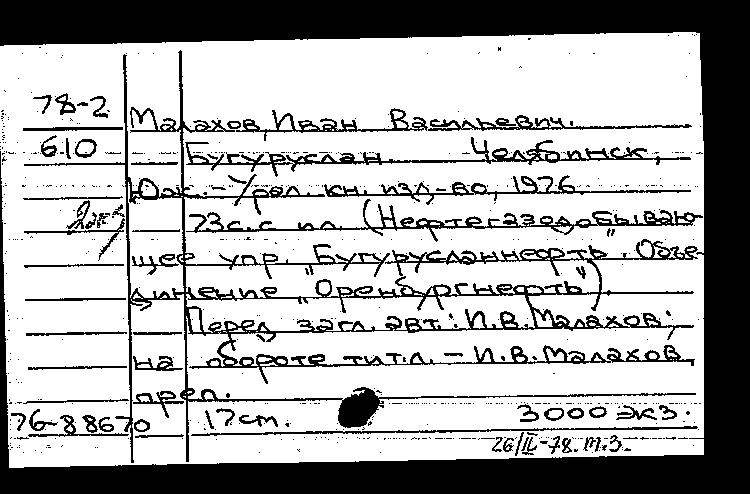 78-2
Малахов, Иван Васильевич.
610
Бугуруслан. Челябинск,
Юж.-Урал. кн. изд-во, 1976.
2 экз
73 с. с ил. (Нефтегазодобываю-
щее упр. "Бугурусланнефть". Объе-
динение "Оренбургнефть").
Перед загл. авт.: И.В. Малахов;
на обороте тит.л. - И.В. Малахов,
преп.
76-88670 17 см. 3000 экз.
26/II-78. т.з.